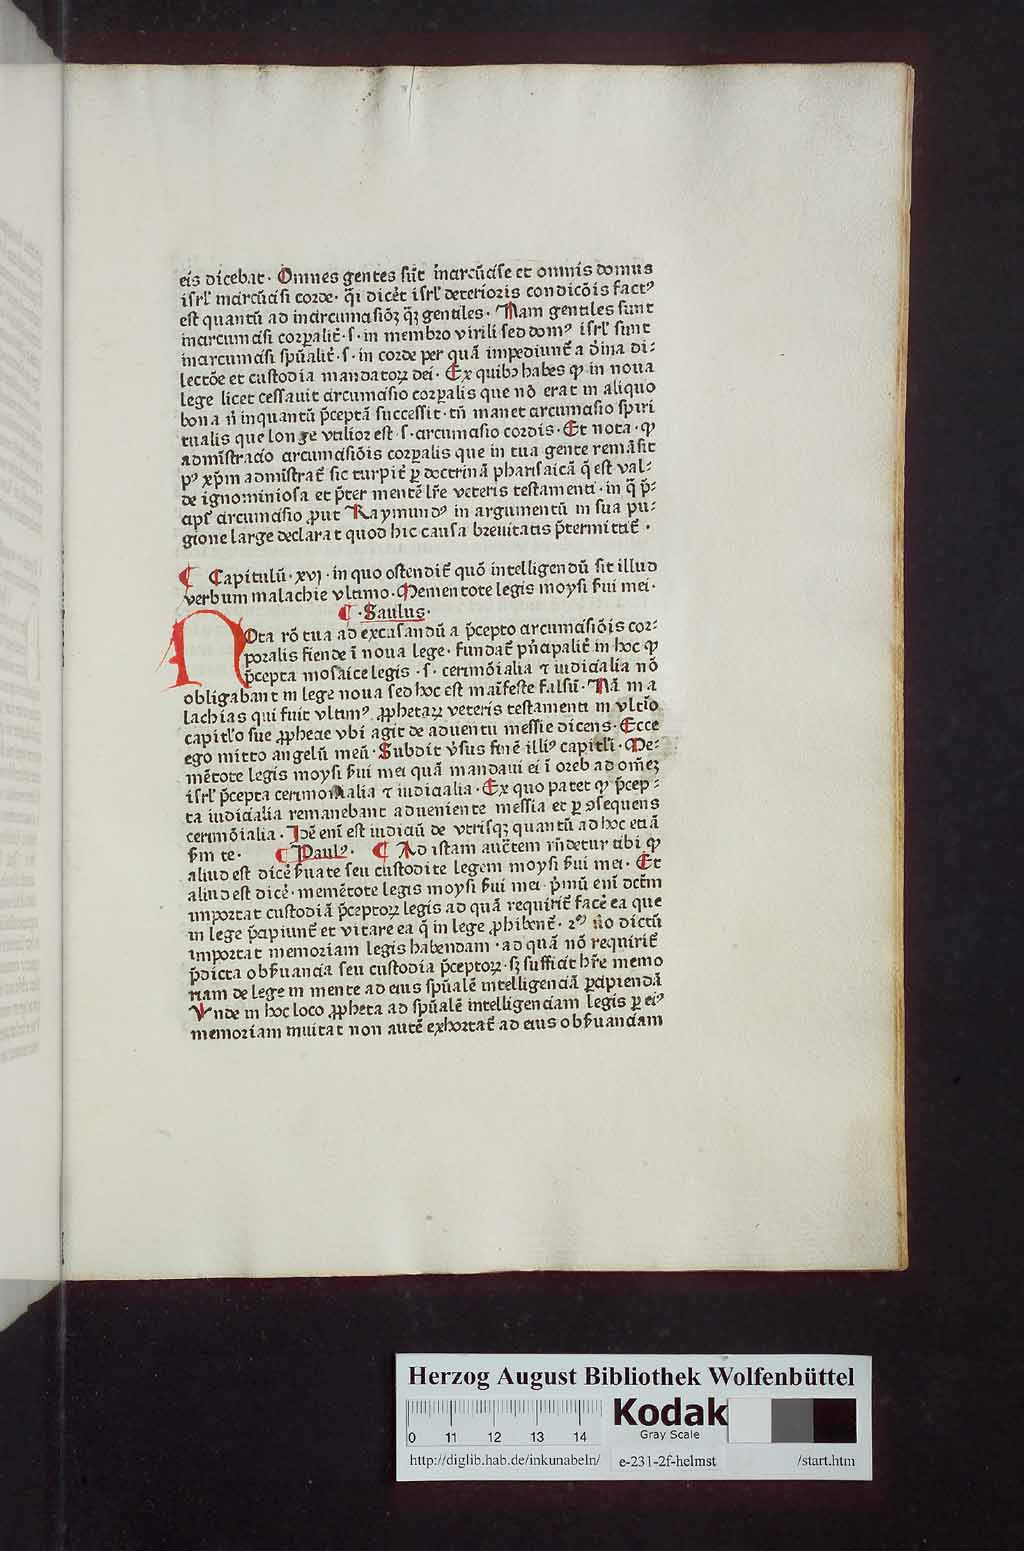 eis dicebat· Omnes gentes sūt incircūcise et omnis domus
isrl' incircūcisi corde· q̄i dicēt isrl' deterioris condicōis factꝰ
est quantū ad incircumcisiōꝫ q̄ꝫ gentiles· Nam gentiles sunt
incircumcisi corꝑalit̄·s·in membro virili sed domꝰ isrl' sunt
incircumcisi spūalit̄·s·in corde per quā impediunt̄ a diīna di⸗
lectōe et custodia mandatoꝝ dei· Ex quibꝰ habes ꝙ in noua
lege licet cessauit circumcisio corꝑalis que nō erat in aliquo
bona n̄ inquantū p̄ceptā successit· tn̄ manet circumcisio spiri
tualis que longe vtilior est·s·circumcisio cordis· Et nota·ꝙ
admīstracio circumcisiōis corꝑalis que in tua gente remāsit
pꝰ xp̄m admīstrat̄ sic turpit̄ ꝑ doctrinā pharisaicā q̄ est val⸗
de ignominiosa et p̄ter mentē lr̄e veteris testamenti·in q̄ p̄⸗
cipr̄ circumcisio ꝓut Raymundꝰ in argumentū in sua pu⸗
gione large declarat quod hic causa breuitatis p̄termittit̄·
¶ Capitulū·xvj·in quo ostendit̄ quō intelligendū sit illud
verbum malachie vltimo· Mementote legis moysi ẜui mei·
¶·Saulus·
NOta rō tua ad excusandū a p̄cepto circumcisiōis cor⸗
poralis fiende ī noua lege· fundat̄ pn̄cipalit̄ in hoc ꝙ
p̄cepta mosaice legis·s·cerimōialia ⁊ iudicialia nō
obligabant in lege noua sed hoc est maīfeste falsū· Nā ma
lachias qui fuit vltimꝰ ꝓphetaꝝ veteris testamenti in vltīo
capitl'o sue ꝓphecie vbi agit de aduentu messie dicens· Ecce
ego mitto angelū meū· Subdit v̄sus finē illiꝰ capitl'i· Me⸗
mētote legis moysi ẜui mei quā mandaui ei ī oreb ad om̄eꝫ
isrl' p̄cepta cerimonialia ⁊ iudicialia· Ex quo patet ꝙ p̄cep⸗
ta iudicialia remanebant adueniente messia et ꝑ ꝯsequens
cerimōialia· Idē enī est iudiciū de vtrisqꝫ quantū ad hoc etiā
ẜm te· ¶ Paulꝰ· ¶ Ad istam auctem rn̄detur tibi ꝙ
aliud est dicē ẜuate seu custodite legem moysi ẜui mei· Et
aliud est dicē· memētote legis moysi ẜui mei· p̄mū enī dctm̄
importat custodiā p̄ceptoꝝ legis ad quā requirit̄ facē ea que
in lege p̄cipiunt̄ et vitare ea q̄ in lege ꝓhibent̄· 2ꝰ v̄o dictū
importat memoriam legis habendam· ad quā nō requirit̄
p̄dicta obẜuancia seu custodia p̄ceptoꝝ· sꝫ sufficit hr̄e memo
riam de lege in mente ad eius spūalē intelligenciā ꝑcipiendā
Vnde in hoc loco ꝓpheta ad spūalē intelligenciam legis ꝑ eiꝰ
memoriam inuitat non autē exhortat̄ ad eius obẜuanciam
Herzog August Bibliothek Wolfenbüttel
0 11 12 13 14
Kodak
Gray Scale
http://diglib.hab.de/inkunabeln/ e-231-2f-helmst /start.htm